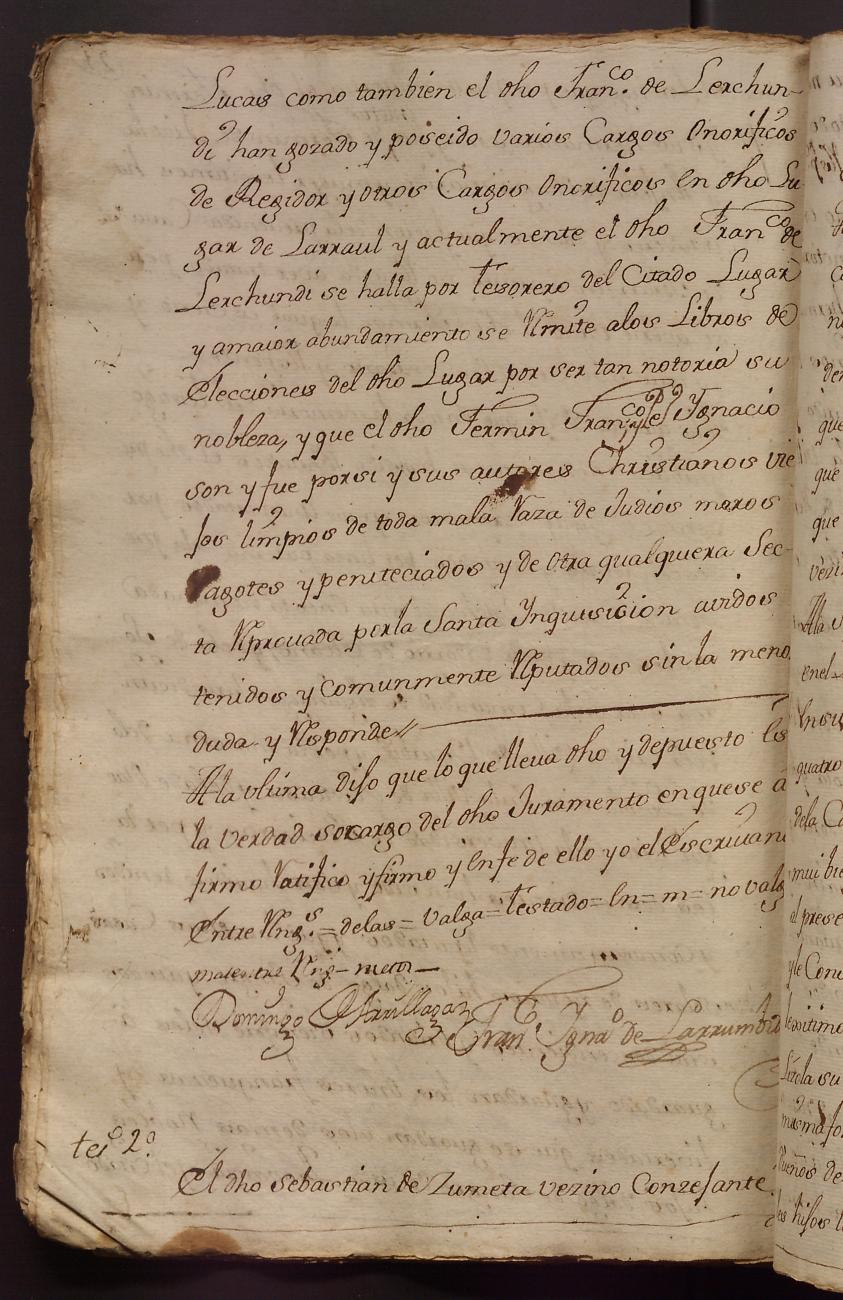 Lucas como tambien el dho Fran.co de Lerchun-
di han gozado y poseido varios Cargos Onorificos
de Regidor y otros Cargos Onorificos en dho Lu
gar de Larraul y actualmente el dho Fran.co de
Lerchundi se halla por tesorero del Citado Lugar
y amaior abundamiento se Rmite alos Libros de
Elecciones del dho Lugar por ser tan notoria su
nobleza, y que el dho Fermin Fran.co y Ygnacio
son y fue porsi y sus autores Christianos vie
jos limpios de toda mala Raza de Judios moros
agotes y peniteciados y de otra qualquiera Sec-
ta Rprovada porla Santa Ynquisicion avidos
tenidos y Comunmente Rputados sin la meno
duda y Rsponde
Ala ultima dijo que lo que lleva dho y depuesto es
la verdad so cargo del dho Juramento en que se a
firmo Ratifico y firmo y en fe de ello yo el Escrivan
Entre Rng.s = delas = valga = testado = en = m = no valg
mas entre Rng
Domingo Fran.co Ygn.o de Larrumbide
tes.o 2.o
El dho Sebastian de Zumeta vezino Conzejante
que
que
que
enel
quatro
dela
mui bie
el prese